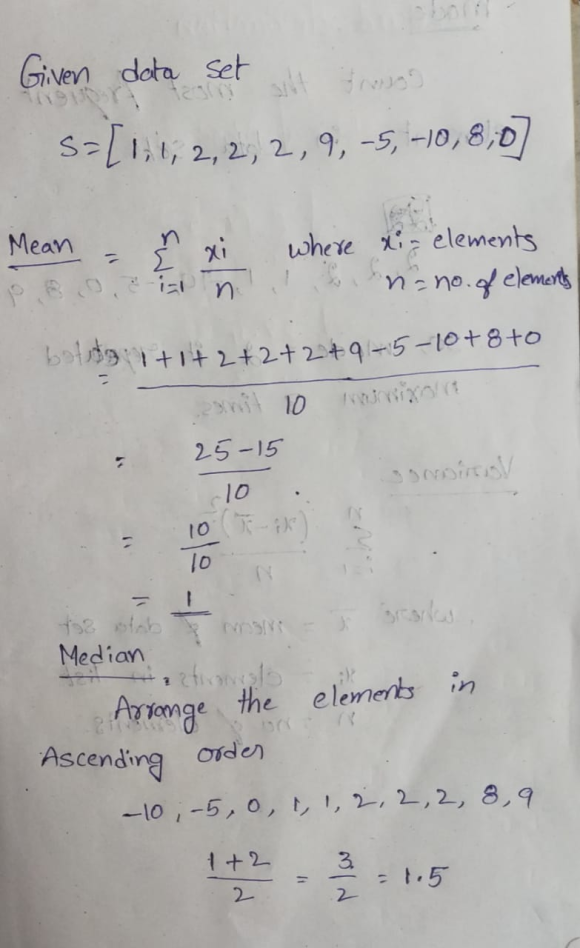 Given data set
S=[1,1, 2, 2, 2, 9, -5, -10, 8, 0]
Mean = n Σ i=1 xi/n where xi = elements
n = no. of elements
= 1+1+2+2+2+9-5-10+8+0
10
= 25-15
10
= 10
10
= 1
Median
Arrange the elements in
Ascending order
-10, -5, 0, 1, 1, 2, 2, 2, 8, 9
1+2
2 = 3/2 = 1.5